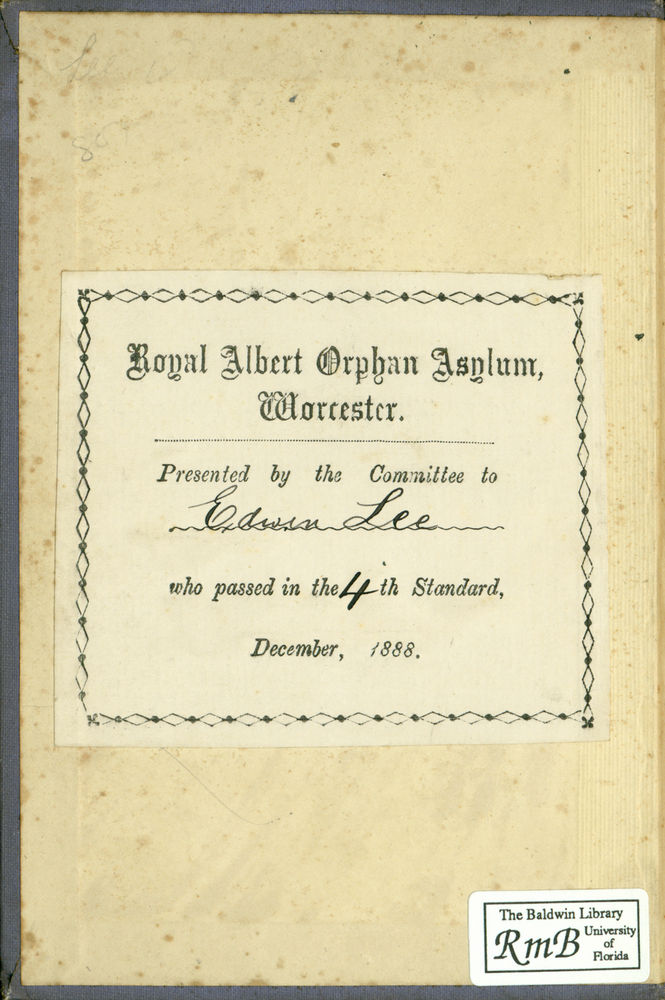 85
Royal Albert Orphan Asylum,
Worcester.
Presented by the Committee to
Edwin Lee
who passed in the 4th Standard,
December, 1888.
The Baldwin Library
RmB University
of
Florida